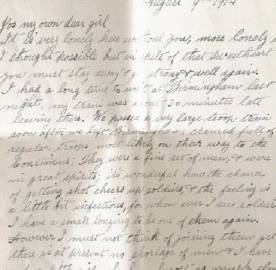 August 9th 1914
Yes my own dear girl
It is very lonely here without you, more lonely
I thought possible but in spite of that sweetheart
you must stay away & get strong & well again.
I had a long time to wait at Birmingham last
night, my train was minutes late
leaving there. We passed a very large troop train
soon after we left Birmingham, crammed full of
regular troops most likely on their way to the
Continent. They were a fine set of men, & were
in great spirits; its wonderful how the chance
of getting shot cheers up soldiers & the feeling is
a little bit infectious, for when ever I see soldiers
I have a small longing to be one of them again.
However I must not think of joining them yet
there is at present no shortage of men & I have